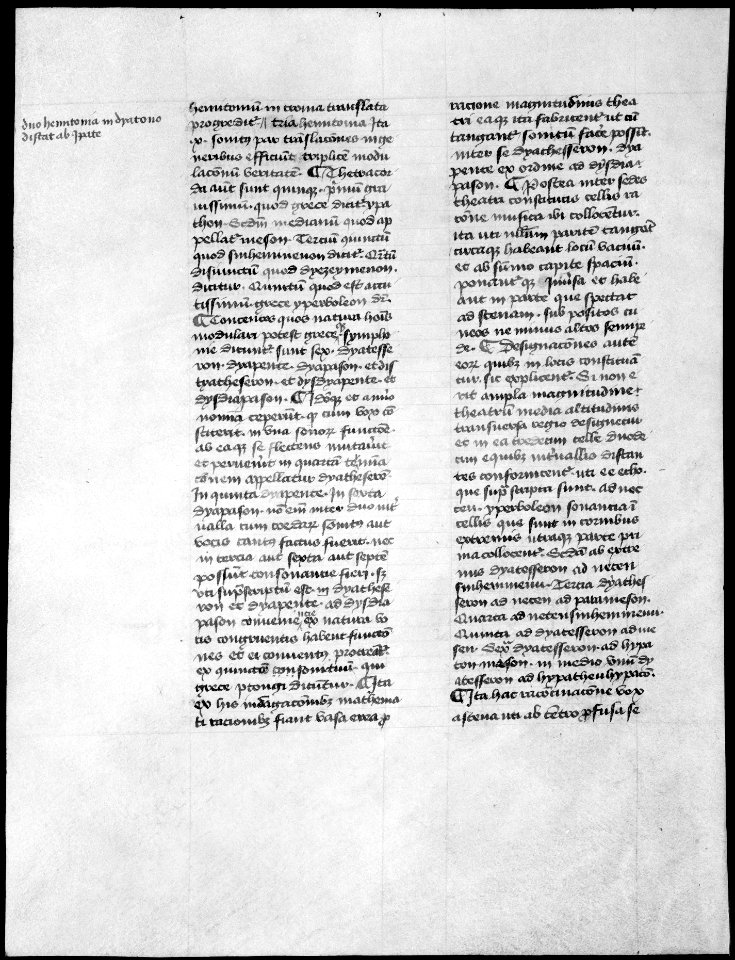 duo hemitonia in dyatono
distat ab ipate
hemitoniū in croma translata
progredit᷑ // tria hemitonia Ita
ꝙ sonitꝰ par translacōnes in ge
neribus efficiūt triplicē modu
lacōnū veritatē. ¶ Thetracor
da aūt sunt quinque. pⁱmū gra
uissimū. quod grece dicit᷑ ypa
thon. Scdm̄ medianū quod ap
pellat᷑ meson. Terciū 9iunctū
quod sinhemmenon dicit᷑. Qrtū
disiunctū quod dyezeymenon.
dicitur. Quintū quod est acu
tissimū. grece yperboleon dr̄.
¶ Concentos quos natura hoīs
modulari potest grece qͣ sympho
nie dicunt᷑ sunt sex. dyatesse
ron. dyapente. dyapason. et dis
tyatheseron. et dysdyapente. et
dysdiapason. ¶ Idoqꝫ et a nūo
nomina ceperūt. ꝙ cum vox cō
stiterit. in vna sonor functōe.
ab eaqꝫ se flectens mutauit
et peruenit in quartā t᷑mina
cōnem appellatur dyatheserō.
In quinta dyapente. In sexta
dyapason. nō em̄ inter duo int᷑
ualla cum cordarꝝ sonitꝰ aut
vocis cantꝰ factus fuerit. nec
in tercia aut sexta aut septē
possūt consonancie fieri. sꝫ
vti supͣscriptū est. in dyathese
ron et dyapente. ad dysdia
pason convenie ncie ex natura vo
cis congruentis habent functō
nes et ei conuentꝰ procreāt᷑
ex quinctō consonituū. qui
grece ptongi dicunt᷑. ¶ Ita
ex his indagacōnibꝫ mathema
ti racionibꝫ fiant vasa erea ꝓ
racione magnitudinis thea
tri eaqꝫ ita fabricent᷑ ut cū
tangant᷑ sonitum face possit.
inter se dyathesseron. dya
pente ex ordine ad dysdia
pason. ¶ Postea inter sedes
theatri constitutis cellis ra
cōne musica ibi collocentur.
ita vti nullum parietē tangāt
circaqꝫ habeant locū vacuū.
et ab sūmo capite spaciū.
ponant᷑qꝫ Inuersa et habe
ant in parte que spectat
ad scenam. suppositos cu
neos ne minus altos semipe
de. ¶ Designacōnes autē
eorꝝ quibꝫ in locis constituā
tur. sic explicent᷑. Si non e
rit ampla magnitudine
theatrū media altitudinis
transuersa regio designetur
et in ea tredecim celle duode
cim equibꝫ int᷑uallis distan
tes conformicent᷑. vti ee echo.
que supͣ scripta sunt. ad nec
teu. yperboleon sonancia ī
cellis que sunt in cornibus
extremis utraqꝫ parte pri
ma collocent᷑. Scdā ab extre
mis dyatesseron ad neten
sinhemmenu. Tercia dyathes
seron ad neten ad parameson.
Quarta ad netensinhemmenu.
Quinta ad dyatesseron ad me
sen. Sexͣ dyatesseron. ad hypa
ton meson. in medio vnū dy
atesseron ad hypatheu hypatō.
¶ Ita hac racōcinacōne vox
a scena uti ab cētro ꝓfusa se